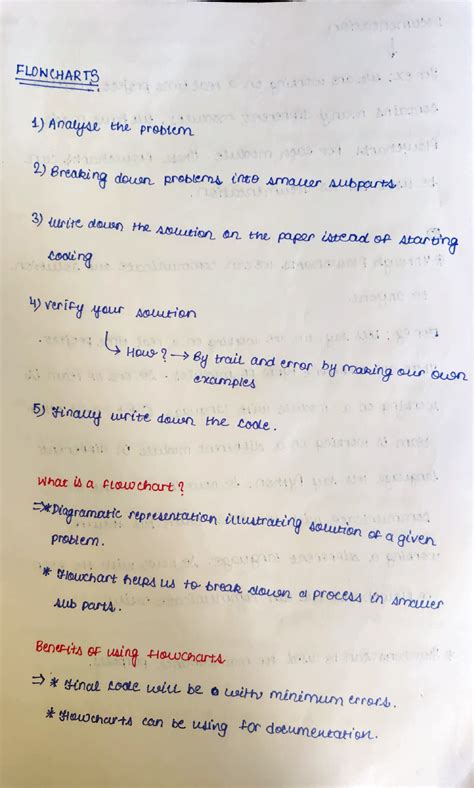 FLOWCHARTS
1) Analyse the problem
2) Breaking down problems into smaller subparts.
3) Write down the solution on the paper istead of starting
coding
4) verify your solution
↳ How? → By trail and error by making our own
examples
5) Finally write down the code.
What is a flowchart?
⇒ * Diagramatic representation illustrating solution of a given
problem.
* Flowchart helps us to break down a process in smaller
sub parts.
Benefits of using flowcharts
⇒ * Final code will be with minimum errors.
* Flowcharts can be using for documentation.